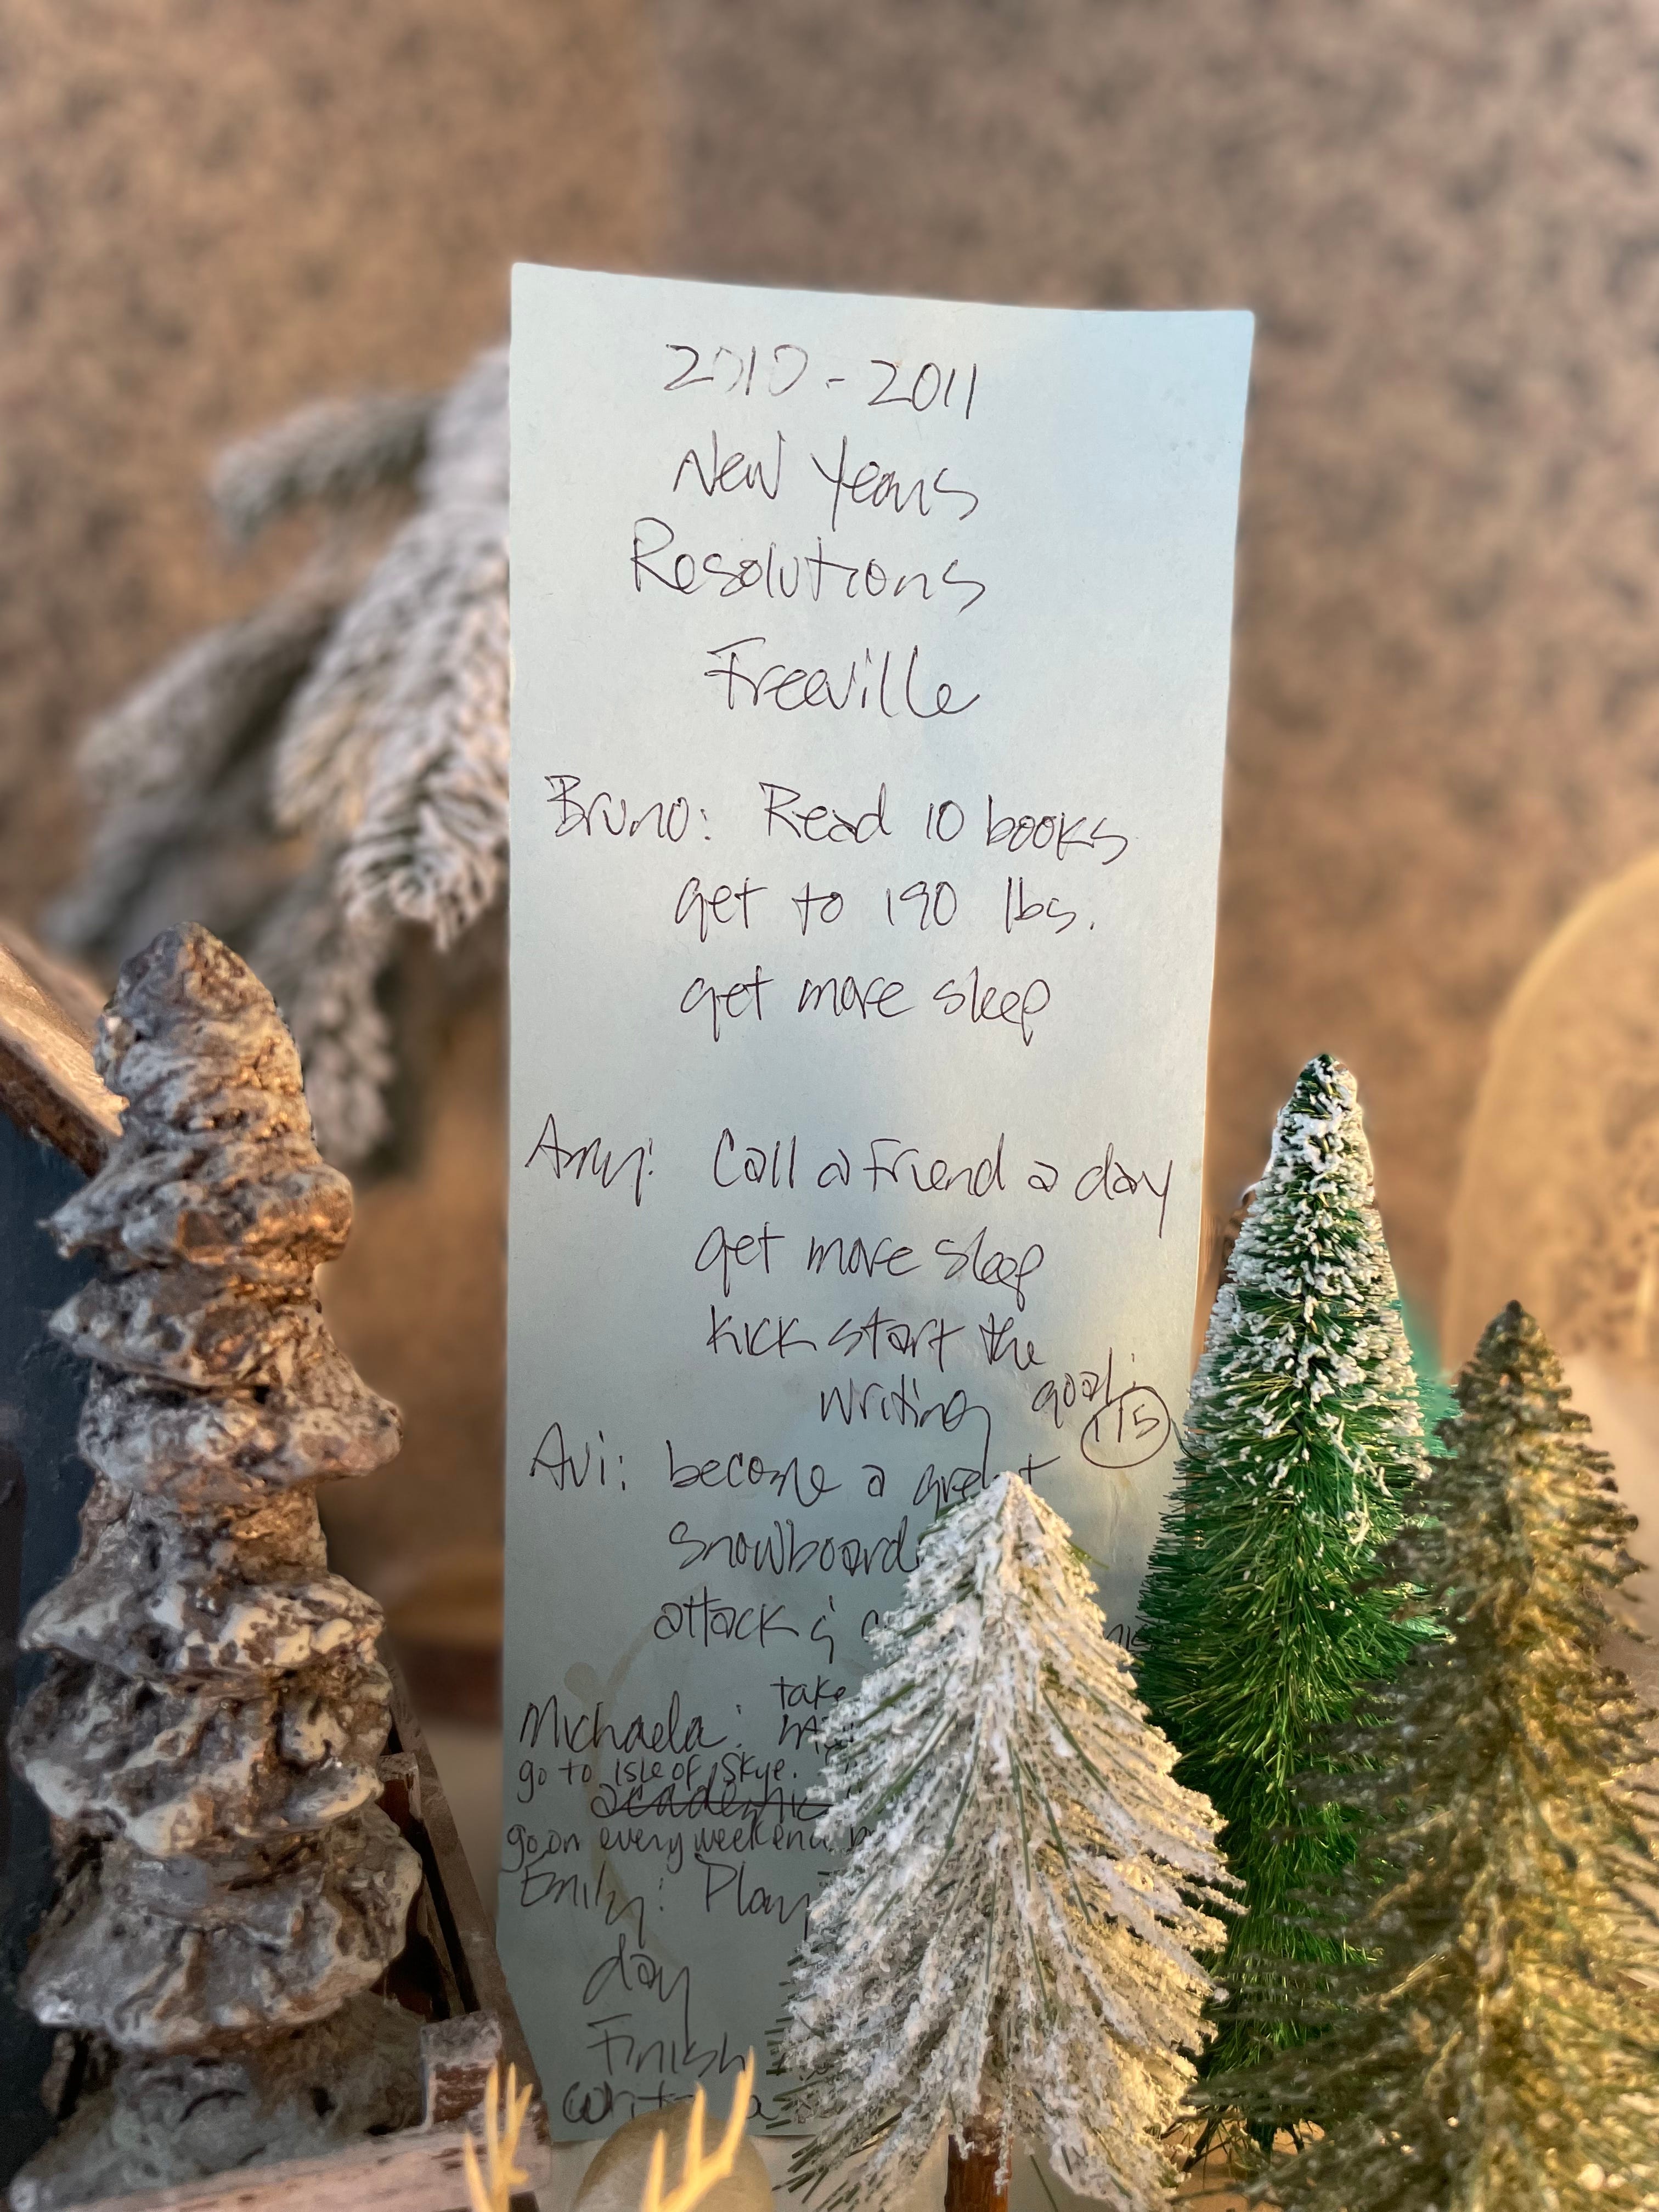 2010 - 2011
New Years
Resolutions
Freeville
Bruno: Read 10 books
get to 190 lbs.
get more sleep
Amy: Call a friend a day
get more sleep
kick start the
writing goal:
115
Avi: become a great
snowboard
attack &
take
Michaela:
go to Isle of Skye.
academic
go on every weekend
Emily: Play
day
Finish